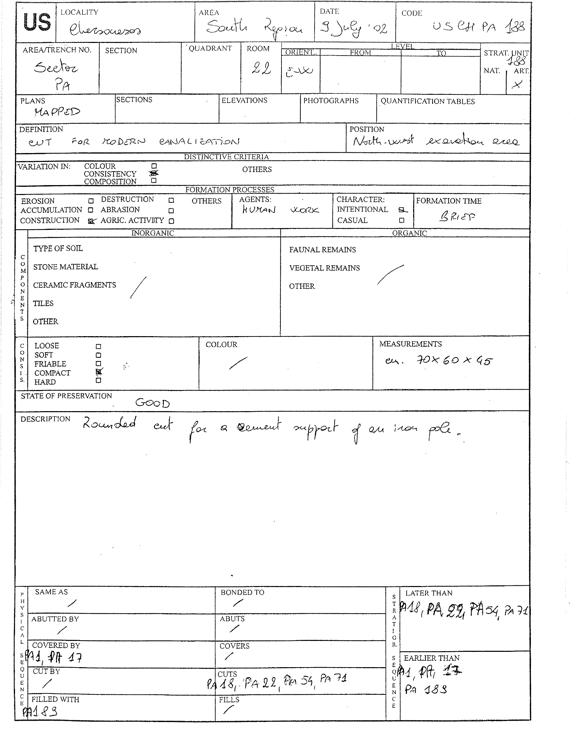 US
LOCALITY
Chersonesos
AREA
South Region
DATE
9 July '02
CODE
USCH PA 188
AREA/TRENCH NO.
Sector
PA
SECTION
QUADRANT
ROOM
22
ORIENT.
E-W
LEVEL
FROM
TO
STRAT. UNIT
188
NAT.
ART.
X
PLANS
MAPPED
SECTIONS
ELEVATIONS
PHOTOGRAPHS
QUANTIFICATION TABLES
DEFINITION
CUT FOR MODERN CANALIZATION
POSITION
North-west excavation area
DISTINCTIVE CRITERIA
VARIATION IN:
COLOUR
CONSISTENCY
COMPOSITION
OTHERS
FORMATION PROCESSES
EROSION
ACCUMULATION
CONSTRUCTION
DESTRUCTION
ABRASION
AGRIC. ACTIVITY
OTHERS
AGENTS:
HUMAN WORK
CHARACTER:
INTENTIONAL
CASUAL
FORMATION TIME
BRIEF
COMPONENTS
INORGANIC
TYPE OF SOIL
STONE MATERIAL
CERAMIC FRAGMENTS
TILES
OTHER
/
ORGANIC
FAUNAL REMAINS
VEGETAL REMAINS
OTHER
/
CONSIS.
LOOSE
SOFT
FRIABLE
COMPACT
HARD
COLOUR
/
MEASUREMENTS
cm. 70x60x45
STATE OF PRESERVATION
GOOD
DESCRIPTION
Rounded cut for a cement support of an iron pole.
PHYSICAL SEQUENCE
SAME AS
/
BONDED TO
/
ABUTTED BY
/
ABUTS
/
COVERED BY
PA1, PA 17
COVERS
/
CUT BY
/
CUTS
PA18, PA22, PA 54, PA 71
FILLED WITH
PA189
FILLS
/
STRATIGR. SEQUENCE
LATER THAN
PA18, PA 22, PA54, PA71
EARLIER THAN
PA1, PA 17
PA 189